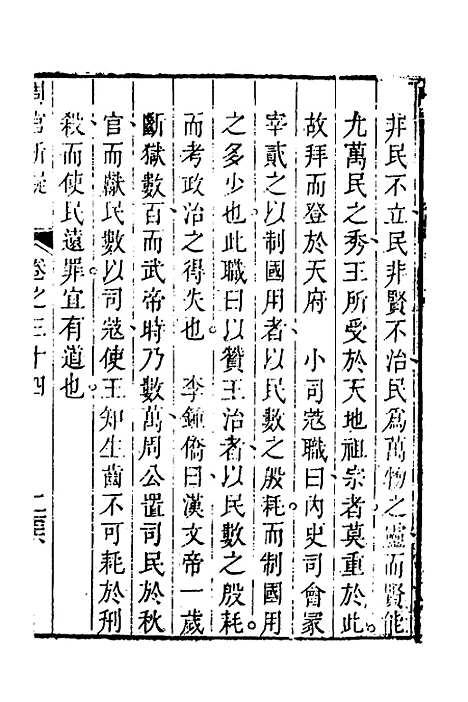 非民不立民非賢不治民爲萬物之靈而賢能
尤萬民之秀王所受於天地祖宗者莫重於此
故拜而登於天府　小司寇職曰內史司會冡
宰貳之以制國用者以民數之殷耗而制國用
之多少也此職曰以贊王治者以民數之殷耗
而考政治之得失也　李鍾僑曰漢文帝一歲
斷獄數百而武帝時乃數萬周公置司民於秋
官而獻民數以司寇使王知生齒不可耗於刑
殺而使民遠罪宜有道也
周官析疑
卷之三十四